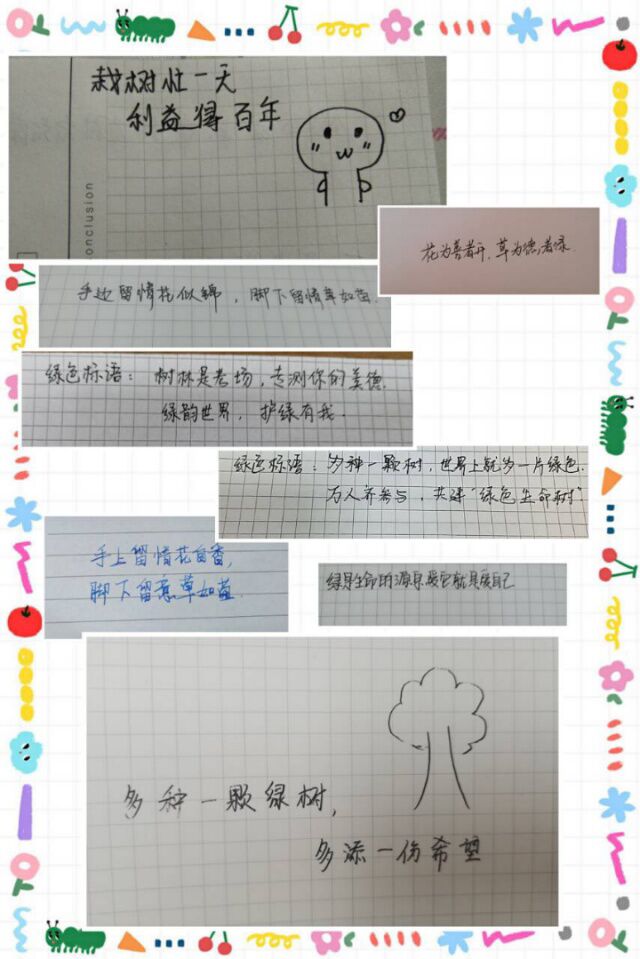 栽树忙一天
利益得百年
onclusion
花为善者开，草为德者绿
手边留情花似锦，脚下留情草如茵.
绿色标语：树林是考场，专测你的美德.
绿韵世界，护绿有我.
绿色标语：多种一颗树，世界上就多一片绿色.
万人齐参与，共建“绿色生命树”
手上留情花自香，
脚下留意草如茵.
绿是生命的源泉爱它就是爱自己
多种一颗绿树，
多添一份希望